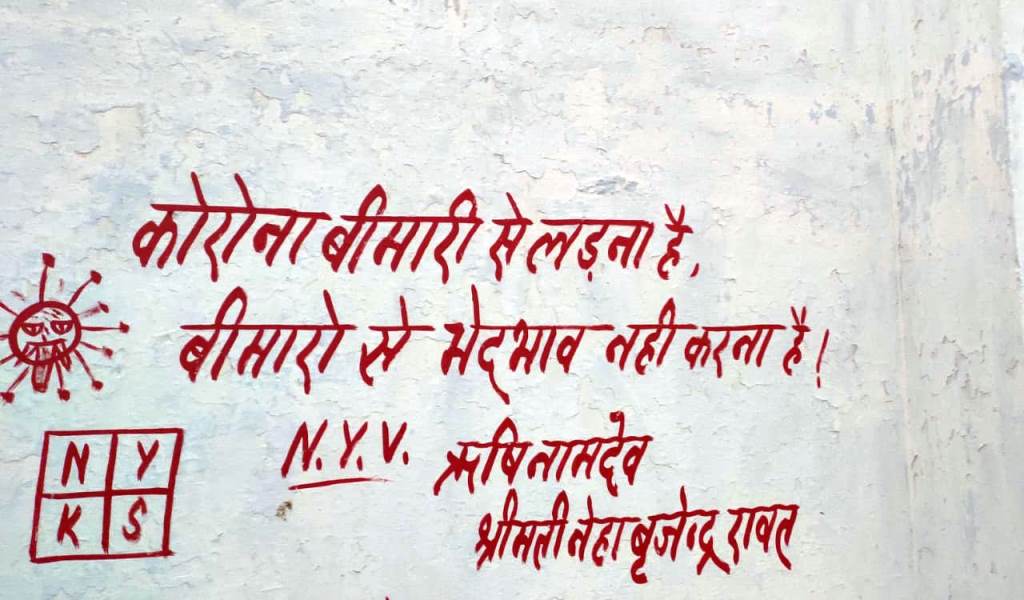 कोरोना बीमारी से लड़ना है,
बीमारो से भेदभाव नही करना है!
N Y
K S
N.Y.V. ऋषि नामदेव
श्रीमती नेहा बृजेन्द्र रावत